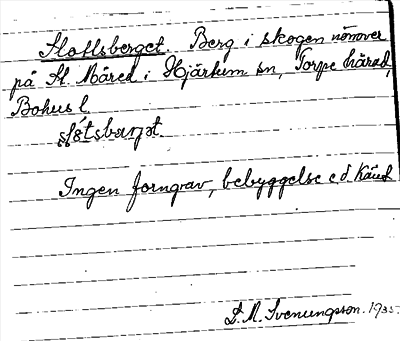 Slottsberget. Berg i skogen norröver
på St Måred i Hjärtum sn, Torpe härad,
Bohus l.
Ingen forngrav, bebyggelse e.d. känd
D. M. Svenungsson. 1935.